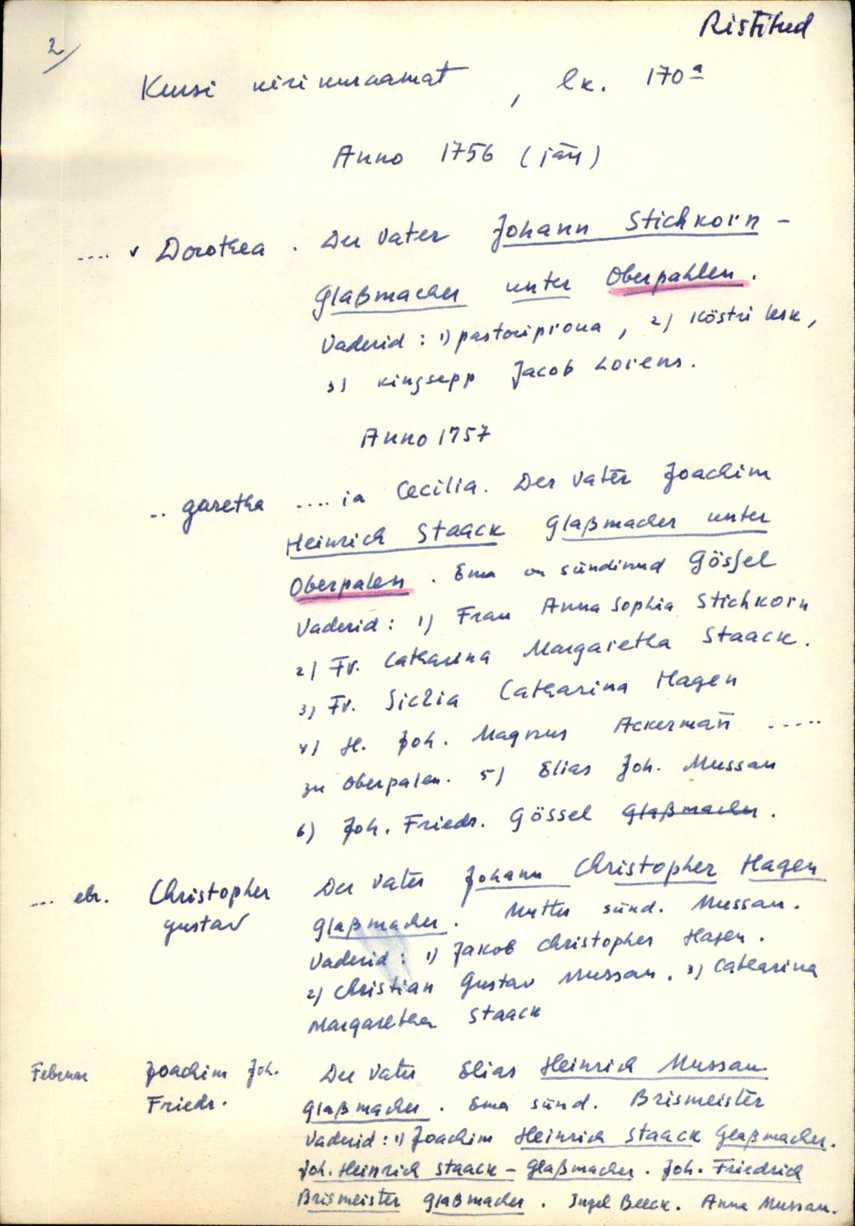 2/
Ristitud
Kursi kirikuraamat, lk. 170ª
Anno 1756 (jan)
.... v Dorothea . Der Vater Johann Stichkorn -
Glaßmacher unter Oberpahlen.
Vaderid : 1) pastoriproua, 2) Köstri lesk,
3) kingsepp Jacob Lorens.
Anno 1757
.. garetha .... ia Cecilia. Der Vater Joachim
Heinrich Staack Glaßmacher unter
Oberpalen. Ema on sündinud Gössel
Vaderid : 1) Frau Anna Sophia Stichkorn
2) Fr. Catharina Margaretha Staack.
3) Fr. Sicilia Catharina Hagen
4) H. Joh. Magnus Ackermañ .....
zu Oberpalen. 5) Elias Joh. Mussau
6) Joh. Friedr. Gössel Glaßmacher.
... ebr. Christopher Der Vater Johann Christopher Hagen
Gustav Glaßmacher. Mutter sünd. Mussau.
Vaderid : 1) Jakob Christopher Hagen.
2) Christian Gustav Mussau. 3) Catharina
Margaretha Staack
Februar Joachim Joh. Der Vater Elias Heinrich Mussau
Friedr. Glaßmacher. Ema sünd. Brismeister
Vaderid : 1) Joachim Heinrich Staack Glaßmacher.
Joh. Heinrich Staack - Glaßmacher. Joh. Friedrich
Brismeister Glaßmacher. Ingel Beeck. Anna Mussau.